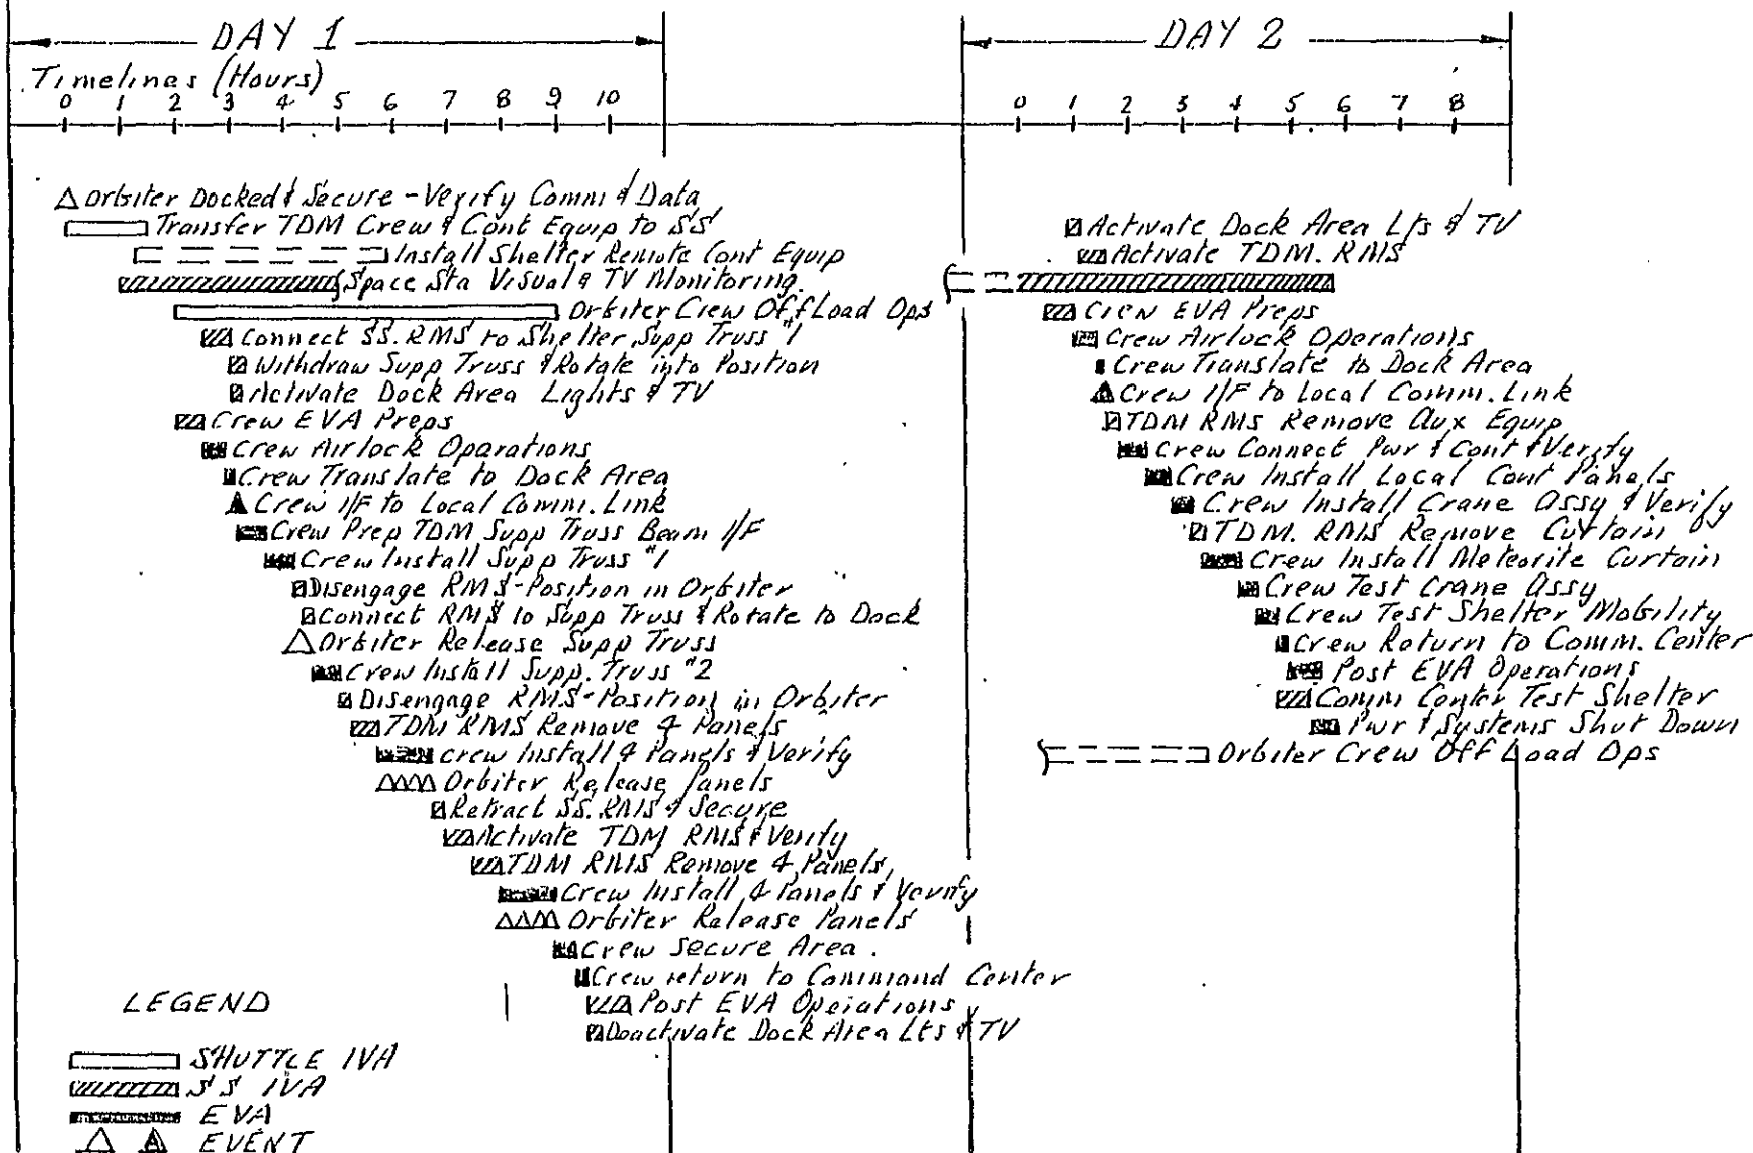 DAY 1
DAY 2
Timelines (Hours)
0 1 2 3 4 5 6 7 8 9 10
0 1 2 3 4 5 6 7 8
Orbiter Docked & Secure - Verify Comm & Data
Transfer TDM Crew & Cont Equip to SS
Install Shelter Remote Cont Equip
Space Sta Visual & TV Monitoring.
Orbiter Crew Off Load Ops
Connect SS. RMS to Shelter Supp Truss #1
Withdraw Supp Truss & Rotate into Position
Activate Dock Area Lights & TV
Crew EVA Preps
Crew Airlock Operations
Crew Translate to Dock Area
Crew I/F to Local Comm. Link
Crew Prep TDM Supp Truss Beam I/F
Crew Install Supp Truss #1
Disengage RMS-Position in Orbiter
Connect RMS to Supp Truss & Rotate to Dock
Orbiter Release Supp Truss
Crew Install Supp. Truss #2
Disengage RMS-Position in Orbiter
TDM RMS Remove 4 Panels
Crew Install 4 Panels & Verify
Orbiter Release Panels
Retract SS. RMS & Secure
Activate TDM RMS & Verify
TDM RMS Remove 4 Panels
Crew Install 4 Panels & Verify
Orbiter Release Panels
Crew Secure Area.
Crew return to Command Center
Post EVA Operations
Deactivate Dock Area Lts & TV
Activate Dock Area Lts & TV
Activate TDM. RMS
Crew EVA Preps
Crew Airlock Operations
Crew Translate to Dock Area
Crew I/F to Local Comm. Link
TDM RMS Remove Aux Equip
Crew Connect Pwr & Cont & Verify
Crew Install Local Cont Panels
Crew Install Crane Assy & Verify
TDM. RMS Remove Curtain
Crew Install Meteorite Curtain
Crew Test Crane Assy
Crew Test Shelter Mobility
Crew Return to Comm. Center
Post EVA Operations
Comm Center Test Shelter
Pwr & Systems Shut Down
Orbiter Crew Off Load Ops
LEGEND
SHUTTLE IVA
SS IVA
EVA
EVENT